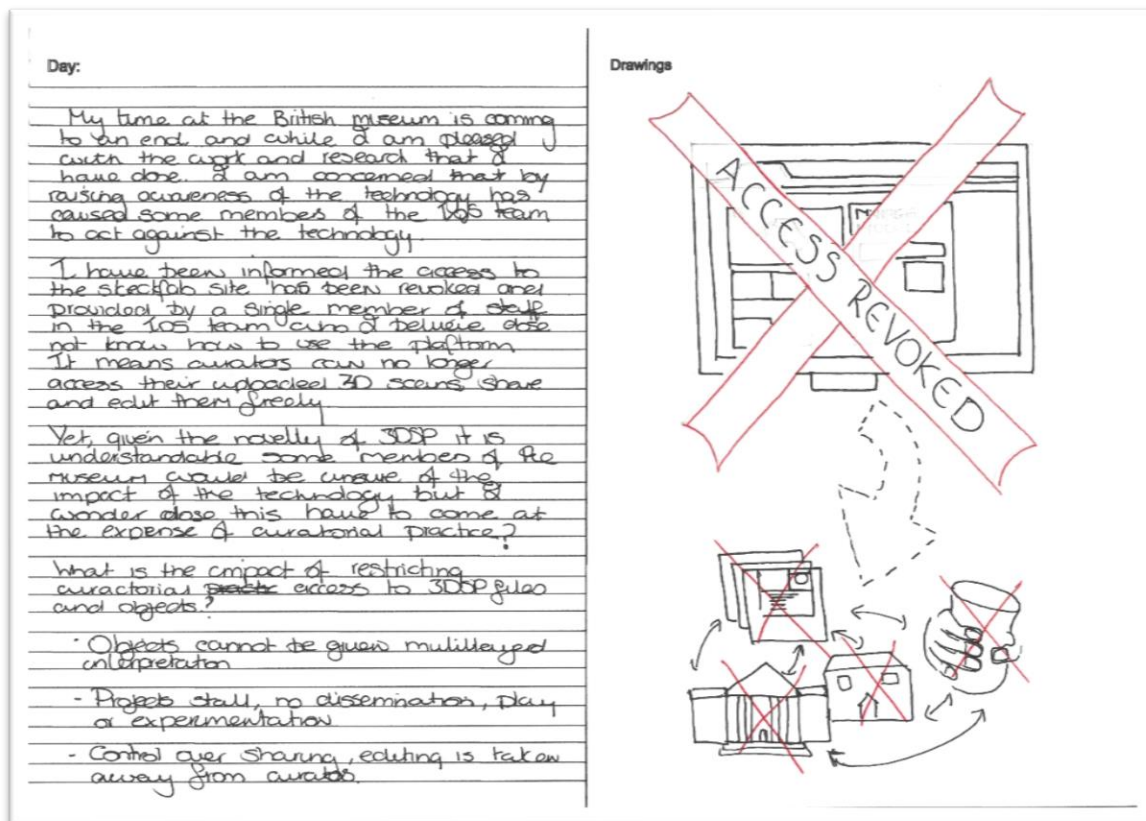 Day:
My time at the British museum is coming
to an end and while I am pleased
with the work and research that I
have done. I am concerned that by
raising awareness of the technology has
caused some members of the team
to act against the technology.
I have been informed the access to
the steckfab site has been revoked and
provided by a single member of staff
in the IOS team and I belueie dose
not know how to use the platform
It means curators can no longer
access their uploaded 3D scans, share
and edit them freely
Yet, given the novelly of 3DSP it is
understandable some members of the
museum would be unsure of the
impact of the technology but I
wonder dose this have to come at
the expense of curatorial practice?
What is the impact of restricting
curactorial access to 3DSP files
and objects?
· Objects cannot be given mulilleyed
interpretation
- Projects stall, no dissemination, play
or experimentation
- Control over sharing, editing is taken
away from curators.
Drawings
ACCESS REVOKED